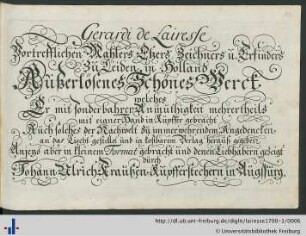 Gerardi de Lairesse
Vortrefflichen Mahlers, Ehers, Zeichners u. Erfinders
Zu Leiden in Holland
Außerlösenes Schönes Werck.
welches
Er mit sonderbahrer Anmüthigkeit mehrertheils
mit eigner Hand in Küpffer gebracht
Auch solches der Nachwelt zu immerwehrenden Angedencken
an das Liecht gestellt und in kostbaren Verlag herauß gegeben
Anjezo aber in kleinem Format gebracht und denen Liebhabern gezeigt
durch
Johann Ulrich Kraußen Kupfferstechern in Augspurg.
http://dl.ub.uni-freiburg.de/diglit/lairesse1700-1/0006
Universitätsbibliothek Freiburg